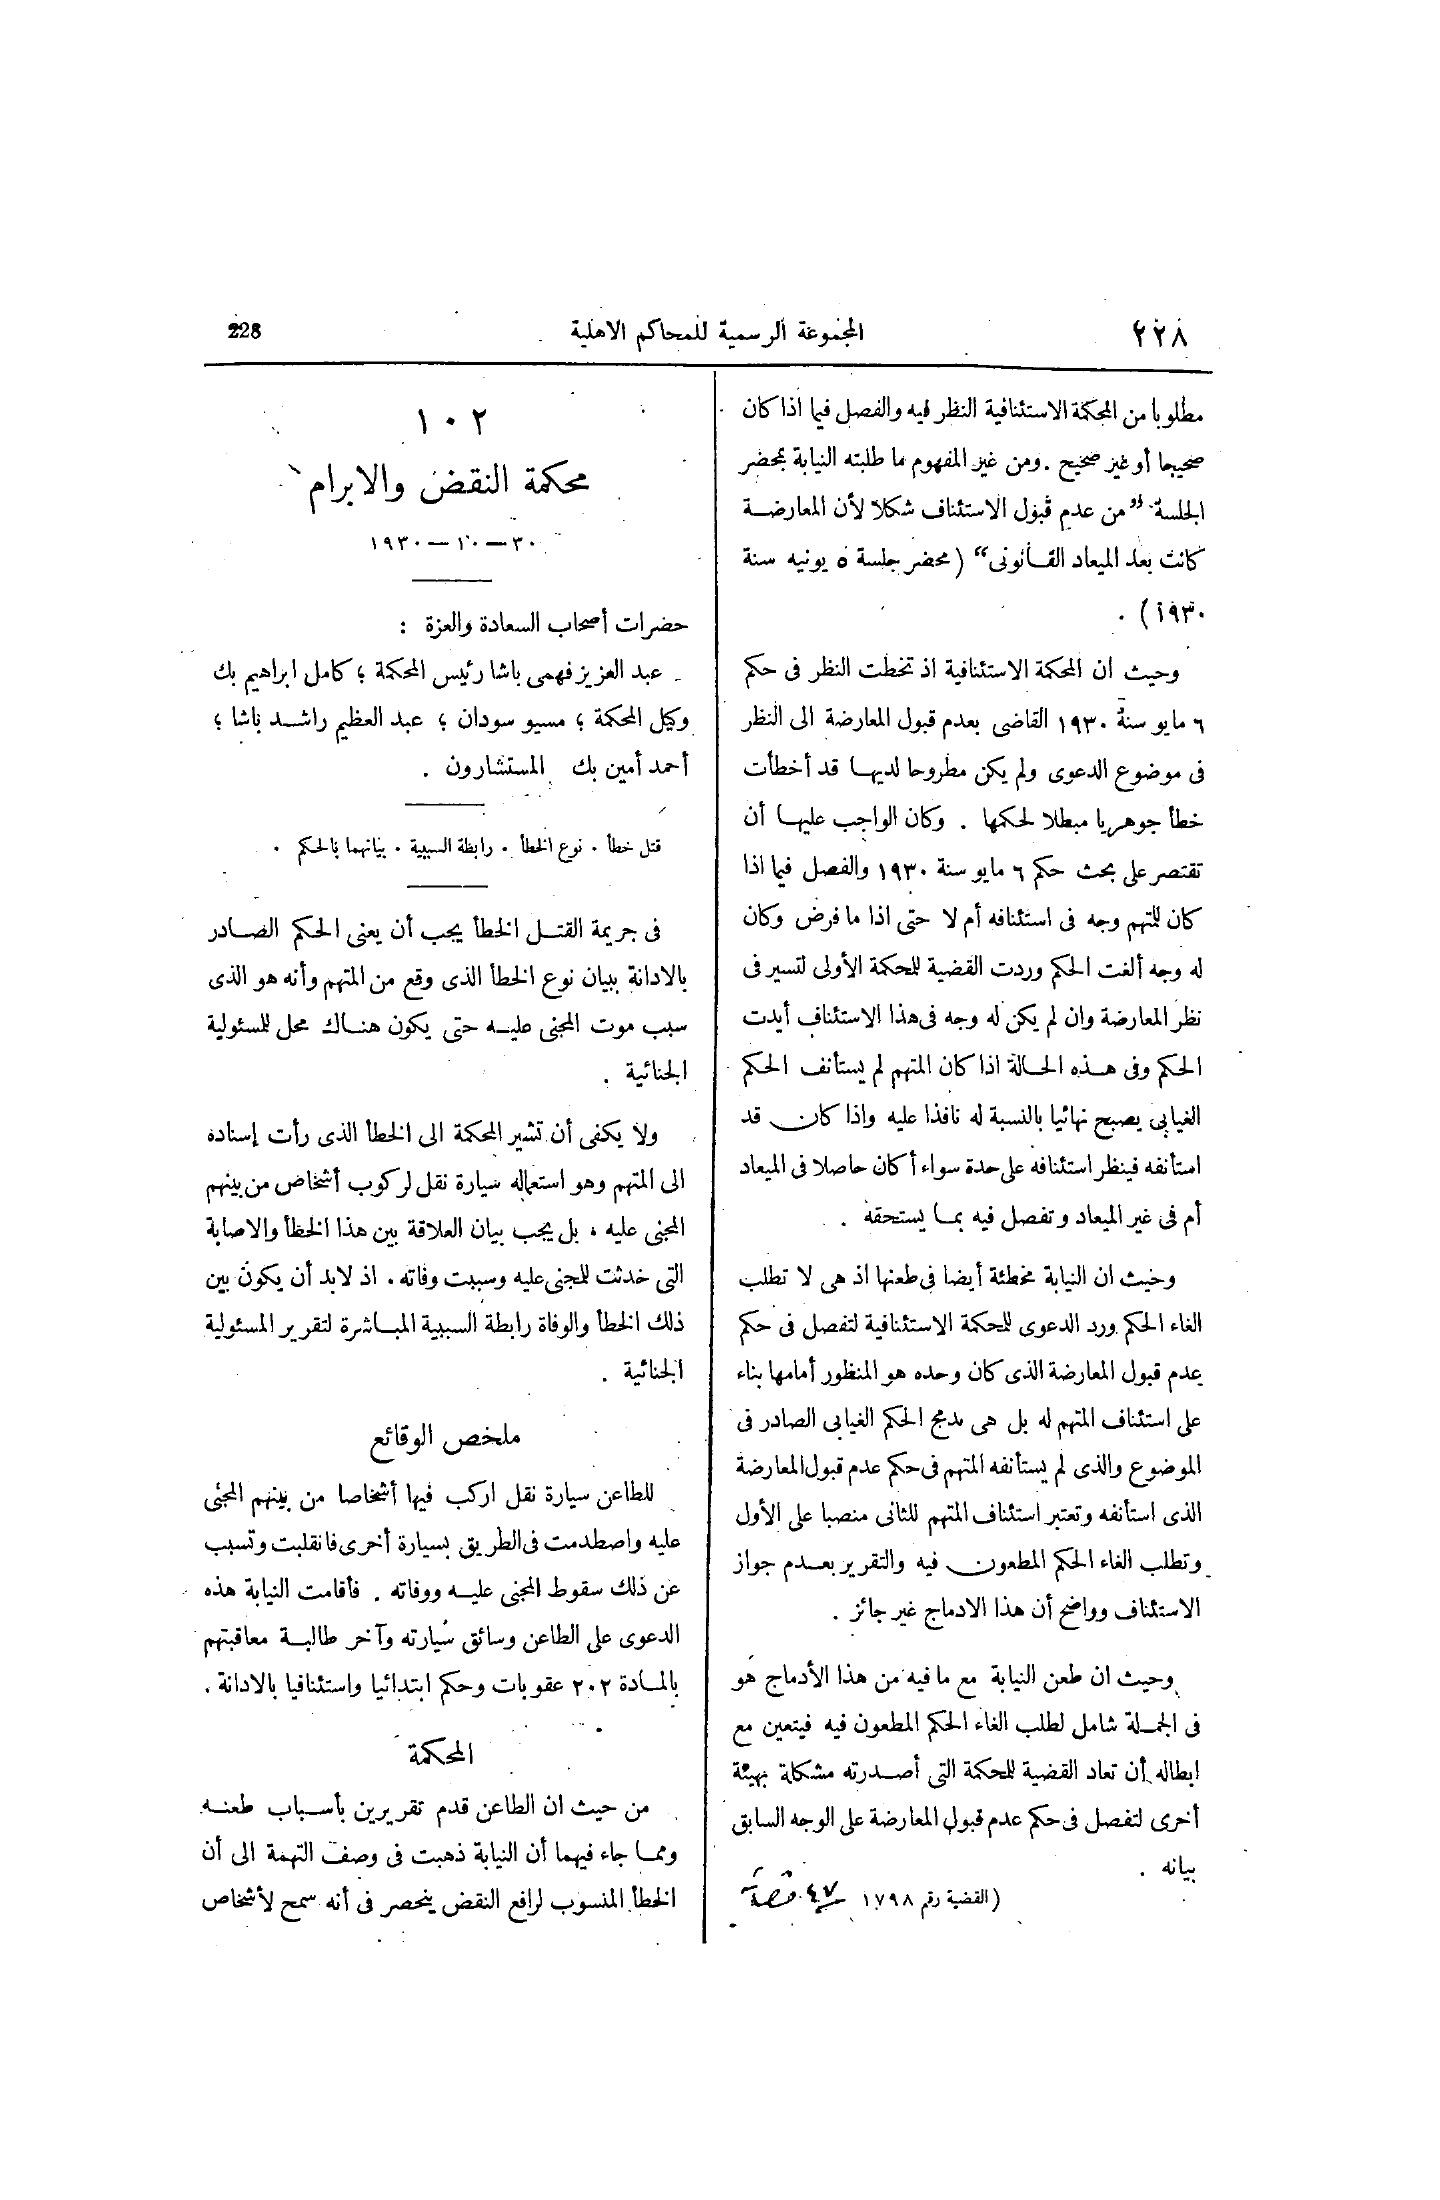 ٢٢٨
المجموعة الرسمية للمحاكم الاهلية
228
مطلوبا من المحكمة الاستئنافية النظر فيه والفصل فيما اذا كان
صحيحا أو غير صحيح . ومن غير المفهوم ما طلبته النيابة بمحضر
الجلسة "من عدم قبول الاستئناف شكلا لأن المعارضة
كانت بعد الميعاد القانونى" (محضر جلسة ٥ يونيه سنة
١٩٣٠) .
وحيث ان المحكمة الاستئنافية اذ تخطت النظر فى حكم
٦ مايو سنة ١٩٣٠ القاضى بعدم قبول المعارضة الى النظر
فى موضوع الدعوى ولم يكن مطروحا لديها قد أخطأت
خطأ جوهريا مبطلا لحكمها . وكان الواجب عليها أن
تقتصر على بحث حكم ٦ مايو سنة ١٩٣٠ والفصل فيما اذا
كان للمتهم وجه فى استئنافه أم لا حتى اذا ما فرض وكان
له وجه ألغت الحكم وردت القضية للمحكمة الأولى لتسير فى
نظر المعارضة وان لم يكن له وجه فى هذا الاستئناف أيدت
الحكم وفى هذه الحالة اذا كان المتهم لم يستأنف الحكم
الغيابى يصبح نهائيا بالنسبة له نافذا عليه واذا كان قد
استأنفه فينظر استئنافه على حدة سواء أكان حاصلا فى الميعاد
أم فى غير الميعاد وتفصل فيه بما يستحقه .
وحيث ان النيابة مخطئة أيضا فى طعنها اذ هى لا تطلب
الغاء الحكم ورد الدعوى للمحكمة الاستئنافية لتفصل فى حكم
عدم قبول المعارضة الذى كان وحده هو المنظور أمامها بناء
على استئناف المتهم له بل هى تدمج الحكم الغيابى الصادر فى
الموضوع والذى لم يستأنفه المتهم فى حكم عدم قبول المعارضة
الذى استأنفه وتعتبر استئناف المتهم للثانى منصبا على الأول
وتطلب الغاء الحكم المطعون فيه والتقرير بعدم جواز
الاستئناف وواضح أن هذا الادماج غير جائز .
وحيث ان طعن النيابة مع ما فيه من هذا الأدماج هو
فى الجملة شامل لطلب الغاء الحكم المطعون فيه فيتعين مع
ابطاله أن تعاد القضية للمحكمة التى أصدرته مشكلة بهيئة
أخرى لتفصل فى حكم عدم قبول المعارضة على الوجه السابق
بيانه .
(القضية رقم ١٧٩٨
١٠٢
محكمة النقض والابرام
٣٠ — ١٠ — ١٩٣٠
حضرات أصحاب السعادة والعزة :
عبد العزيز فهمى باشا رئيس المحكمة ؛ كامل ابراهيم بك
وكيل المحكمة ؛ مسيو سودان ؛ عبد العظيم راشد باشا ؛
أحمد أمين بك المستشارون .
قتل خطأ . نوع الخطأ . رابطة السببية . بيانهما بالحكم .
فى جريمة القتل الخطأ يجب أن يعنى الحكم الصادر
بالادانة ببيان نوع الخطأ الذى وقع من المتهم وأنه هو الذى
سبب موت المجنى عليه حتى يكون هناك محل للمسئولية
الجنائية .
ولا يكفى أن تشير المحكمة الى الخطأ الذى رأت إسناده
الى المتهم وهو استعماله سيارة نقل لركوب أشخاص من بينهم
المجنى عليه ، بل يجب بيان العلاقة بين هذا الخطأ والاصابة
التى حدثت للمجنى عليه وسببت وفاته . اذ لابد أن يكون بين
ذلك الخطأ والوفاة رابطة السببية المباشرة لتقرير المسئولية
الجنائية .
ملخص الوقائع
للطاعن سيارة نقل اركب فيها أشخاصا من بينهم المجنى
عليه واصطدمت فى الطريق بسيارة أخرى فانقلبت وتسبب
عن ذلك سقوط المجنى عليه ووفاته . فأقامت النيابة هذه
الدعوى على الطاعن وسائق سيارته وآخر طالبة معاقبتهم
بالمادة ٢٠٢ عقوبات وحكم ابتدائيا واستئنافيا بالادانة .
المحكمة
من حيث ان الطاعن قدم تقريرين بأسباب طعنه
ومما جاء فيهما أن النيابة ذهبت فى وصف التهمة الى أن
الخطأ المنسوب لرافع النقض ينحصر فى أنه سمح لأشخاص